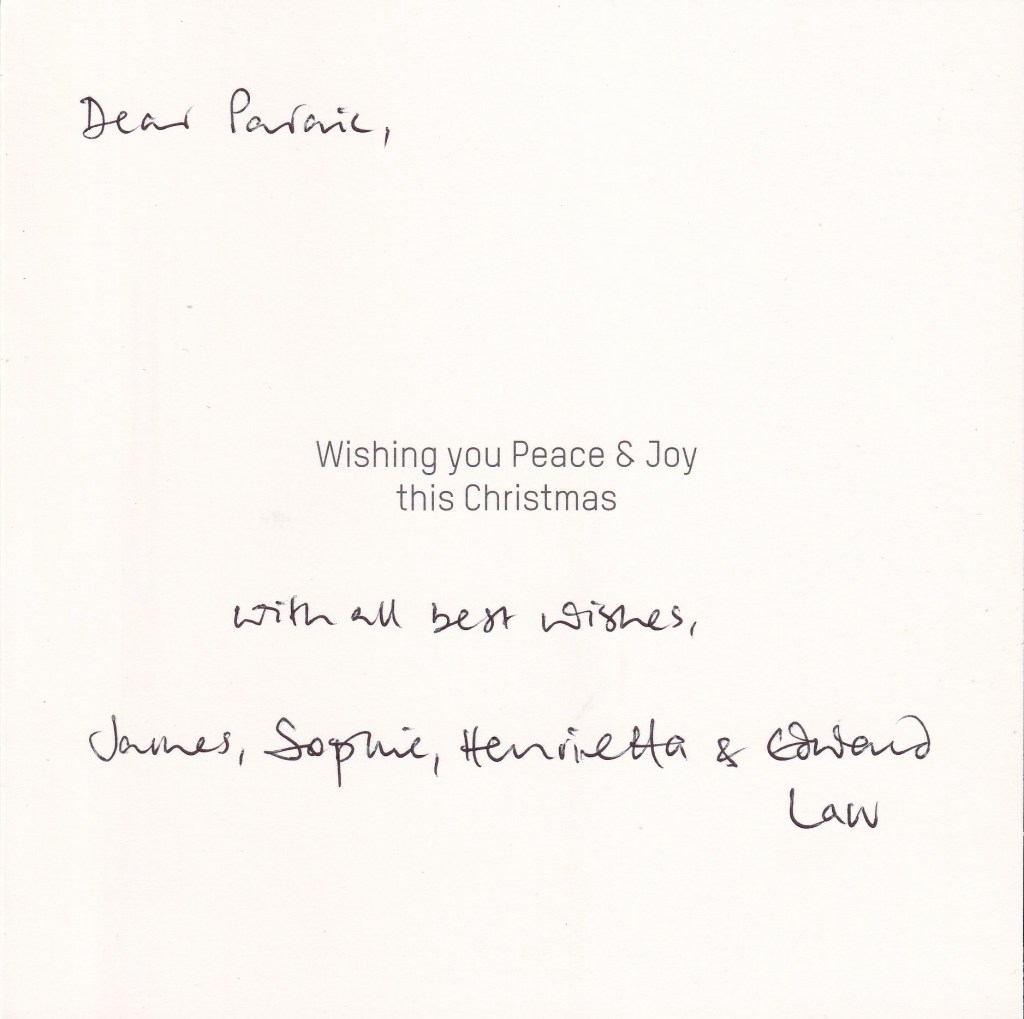 Dear Paraic,
Wishing you Peace & Joy
this Christmas
with all best wishes,
James, Sophie, Henrietta & Edward
Law